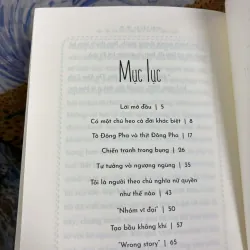 Mục lục
Lời mở đầu | 5
Có một chú heo cả đời khác biệt | 8
Tô Đông Pha và thịt Đông Pha | 17
Chiến tranh trong bụng | 26
Tự tưởng và ngượng ngùng | 35
Tôi là người theo chủ nghĩa nữ quyền
như thế nào | 43
"Nhàm vĩ đại" | 50
Tạo bầu không khí | 57
"Wrong story" | 65